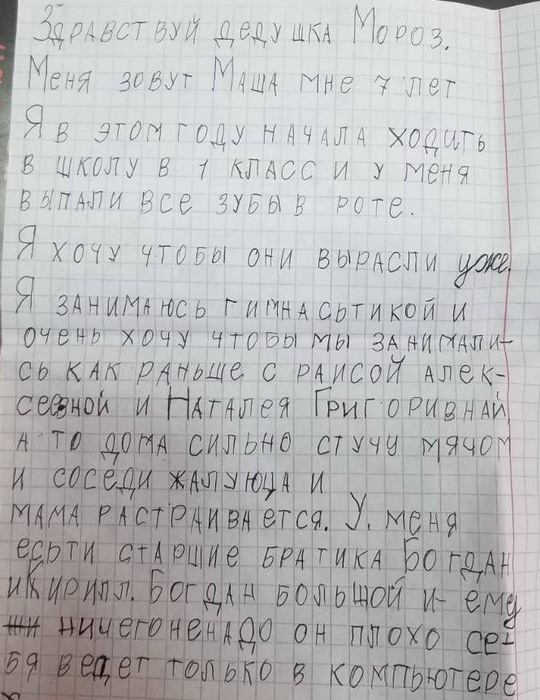 Здравствуй дедушка Мороз.
Меня зовут Маша мне 7 лет
Я в этом году начала ходить
в школу в 1 класс и у меня
выпали все зубы в роте.
Я хочу чтобы они вырасли уже.
Я занимаюсь гимнасьтикой и
очень хочу чтобы мы занимали-
сь как раньше с раисой алек-
сеевной и Наталея Григоривнай,
а то дома сильно стучу мячом
и соседи жалуюца и
мама растраивается. У. меня
есьти старшие братика Богдан
и Кирилл. Богдан большой и ему
ничего ненадо он плохо се-
бя ведет только в компьютере